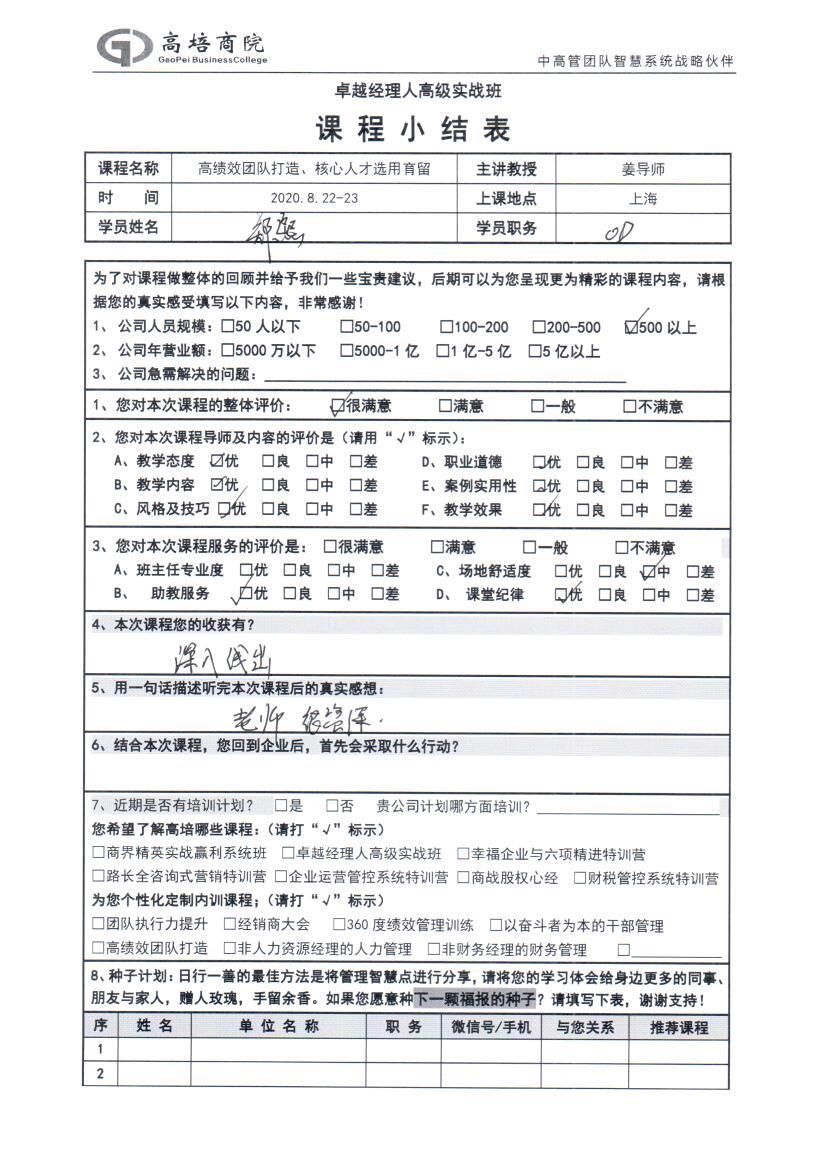 高培商院
GaoPei BusinessCollege
中高管团队智慧系统战略伙伴
卓越经理人高级实战班
课程小结表
课程名称 高绩效团队打造、核心人才选用育留 主讲教授 姜导师
时 间 2020.8.22-23 上课地点 上海
学员姓名 学员职务 OD
为了对课程做整体的回顾并给予我们一些宝贵建议，后期可以为您呈现更为精彩的课程内容，请根
据您的真实感受填写以下内容，非常感谢！
1、 公司人员规模：□50人以下 □50-100 □100-200 □200-500 ☑500以上
2、 公司年营业额：□5000万以下 □5000-1亿 □1亿-5亿 □5亿以上
3、 公司急需解决的问题：
1、您对本次课程的整体评价： ☑很满意 □满意 □一般 □不满意
2、您对本次课程导师及内容的评价是（请用“√”标示）：
A、教学态度 ☑优 □良 □中 □差 D、职业道德 ☑优 □良 □中 □差
B、教学内容 ☑优 □良 □中 □差 E、案例实用性 ☑优 □良 □中 □差
C、风格及技巧 ☑优 □良 □中 □差 F、教学效果 ☑优 □良 □中 □差
3、您对本次课程服务的评价是： □很满意 □满意 □一般 □不满意
A、班主任专业度 □优 □良 □中 □差 C、场地舒适度 □优 □良 ☑中 □差
B、 助教服务 ☑优 □良 □中 □差 D、 课堂纪律 ☑优 □良 □中 □差
4、本次课程您的收获有？
深入浅出
5、用一句话描述听完本次课程后的真实感想：
老师很资深.
6、结合本次课程，您回到企业后，首先会采取什么行动？
7、近期是否有培训计划？ □是 □否 贵公司计划哪方面培训？
您希望了解高培哪些课程：（请打“√”标示）
□商界精英实战赢利系统班 □卓越经理人高级实战班 □幸福企业与六项精进特训营
□路长全咨询式营销特训营 □企业运营管控系统特训营 □商战股权心经 □财税管控系统特训营
为您个性化定制内训课程；（请打“√”标示）
□团队执行力提升 □经销商大会 □360度绩效管理训练 □以奋斗者为本的干部管理
□高绩效团队打造 □非人力资源经理的人力管理 □非财务经理的财务管理 □
8、种子计划：日行一善的最佳方法是将管理智慧点进行分享，请将您的学习体会给身边更多的同事、
朋友与家人，赠人玫瑰，手留余香。如果您愿意种下一颗福报的种子？请填写下表，谢谢支持！
序 姓名 单位名称 职务 微信号/手机 与您关系 推荐课程
1
2